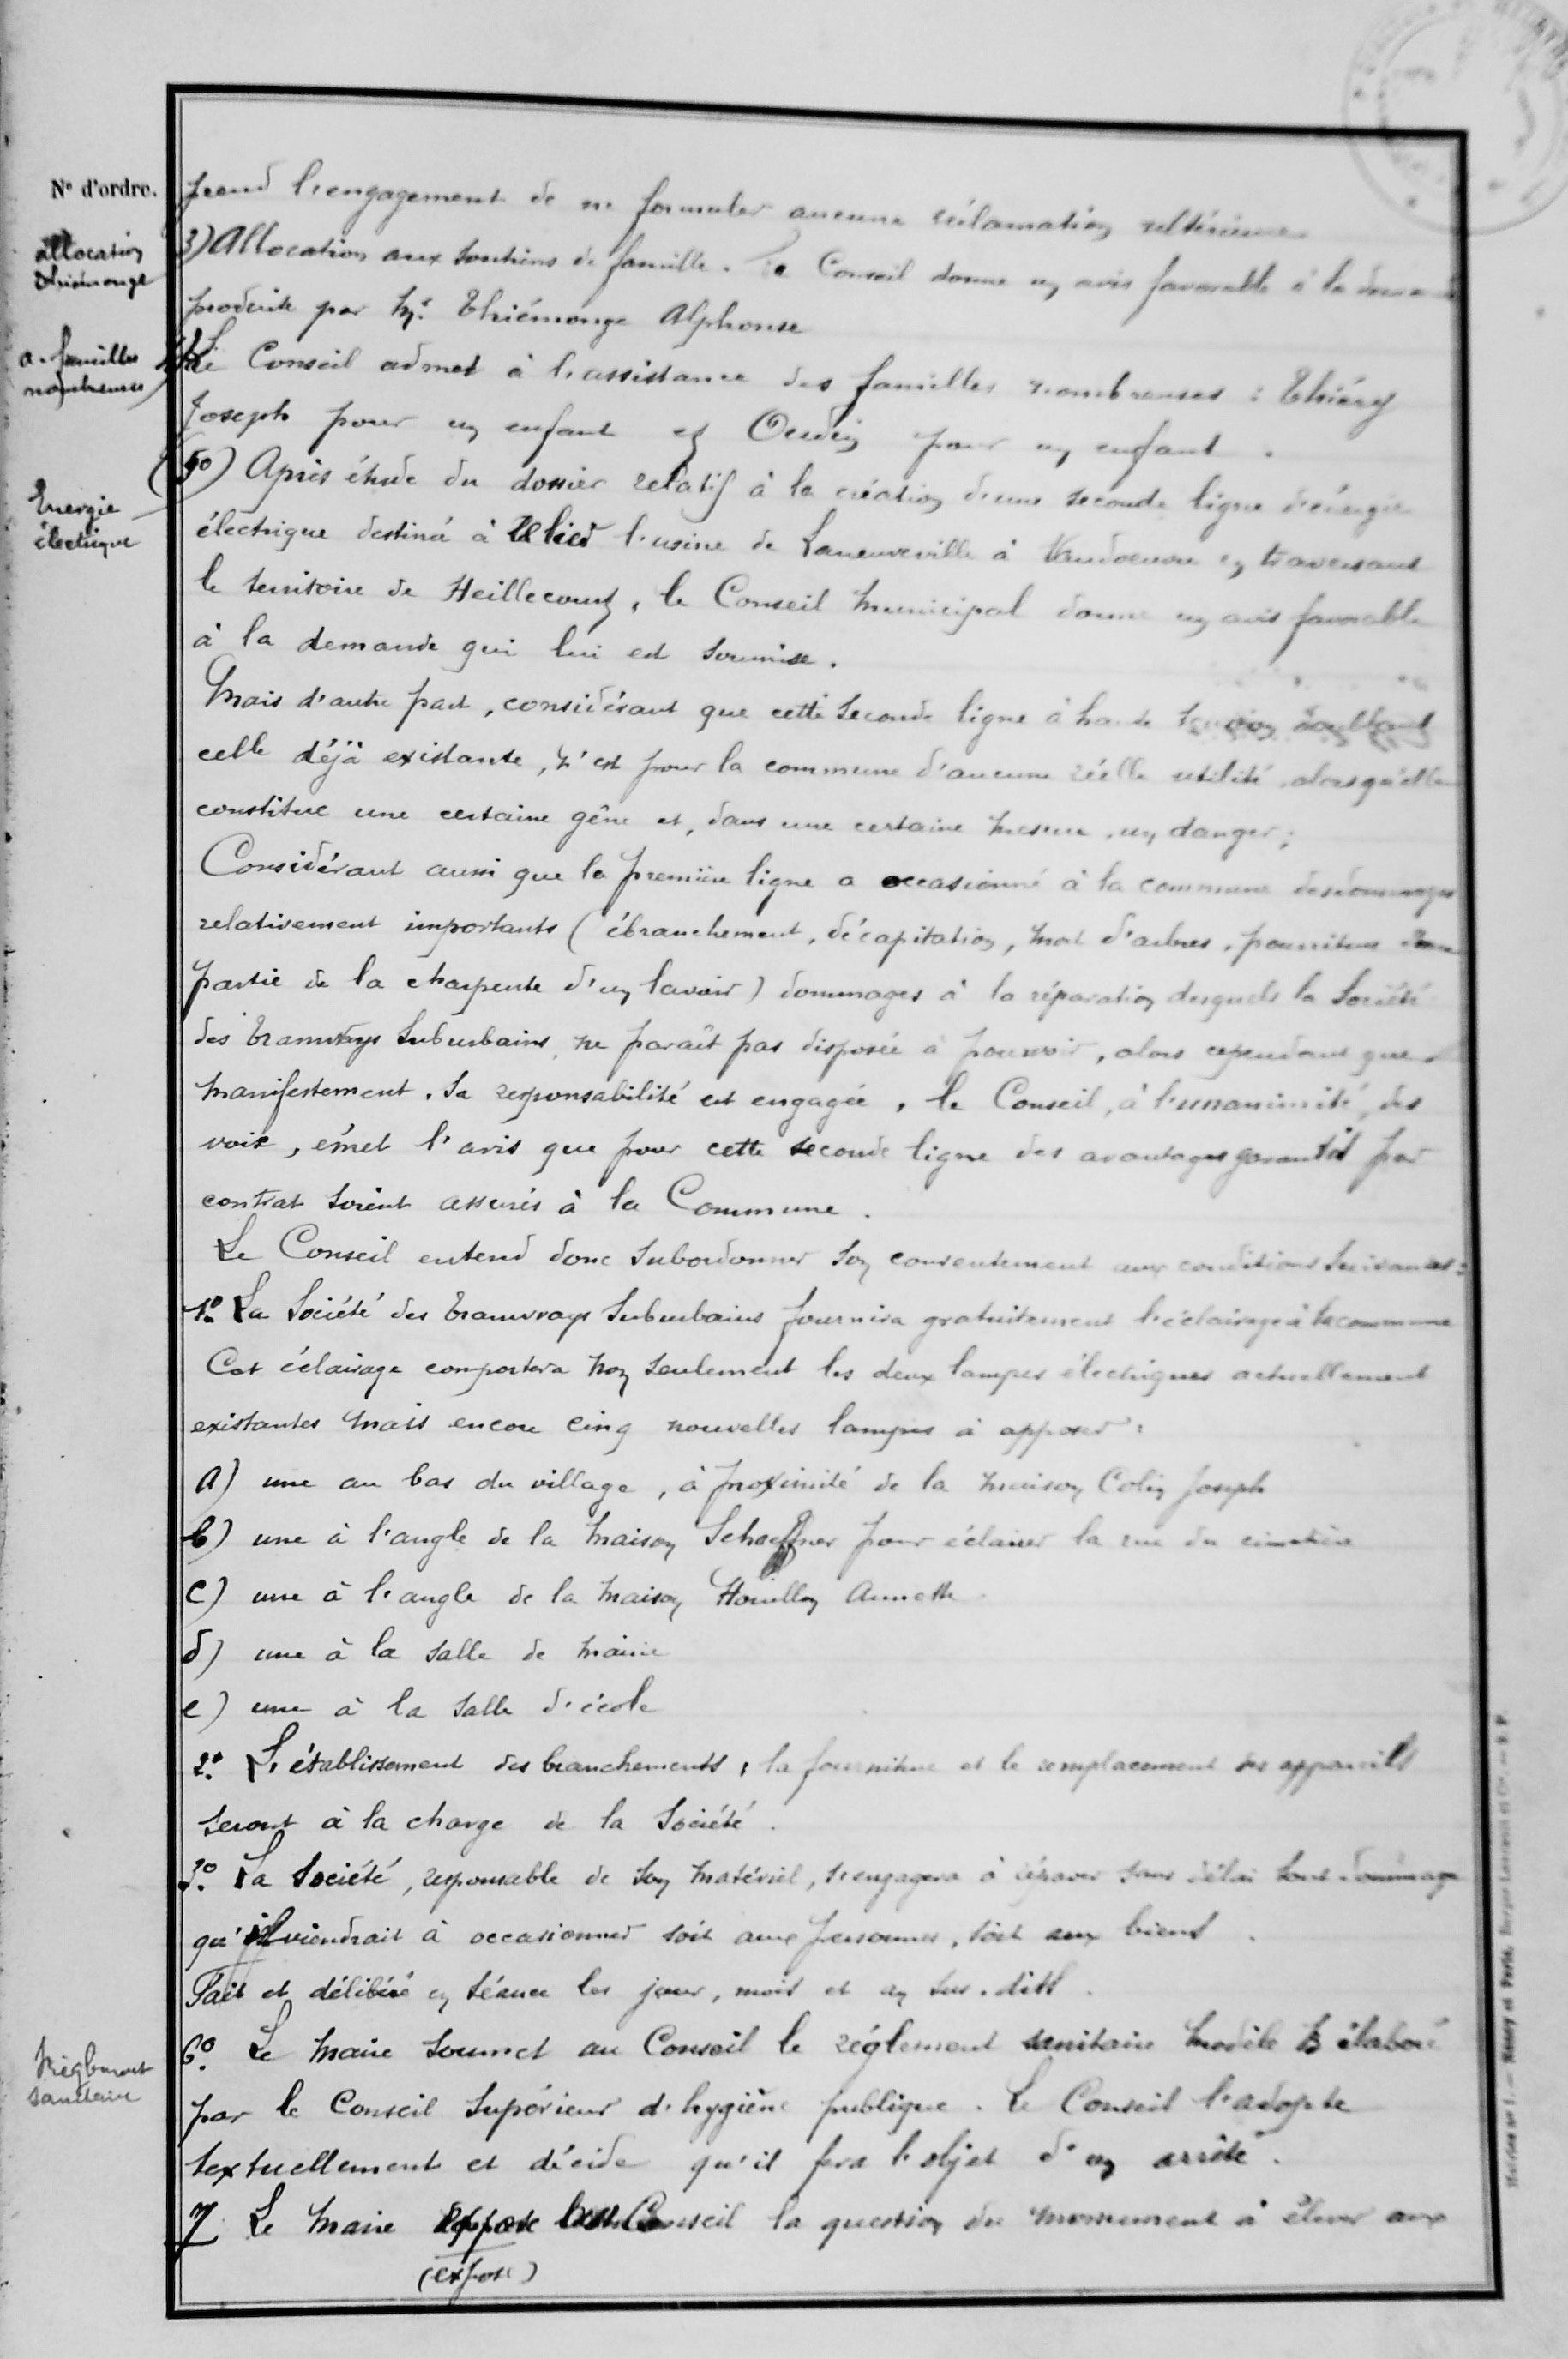 N° d'ordre.
prend l'engagement de ne formuler aucune réclamation ultérieure
allocation
Thiémonge
3) Allocation aux soutiens de famille. Le Conseil donne un avis favorable à la demande
produite par Mr. Thiémonge Alphonse
a. familles
nombreuses
Le Conseil admet à l'assistance des familles nombreuses : Thiéry
Joseph pour un enfant et Oudin pour un enfant.
Energie
électrique
5°) Après étude du dossier relatif à la création d'une seconde ligne d'énergie
électrique destinée à relier l'usine de Laneuveville à Vandoeuvre en traversant
le territoire de Heillecourt, le Conseil Municipal donne un avis favorable
à la demande qui lui est soumise.
Mais d'autre part, considérant que cette seconde ligne à haute tension doublant
celle déjà existante, n'est pour la commune d'aucune réelle utilité, alors qu'elle
constitue une certaine gêne et, dans une certaine mesure, un danger ;
Considérant aussi que la première ligne a occasionné à la commune des dommages
relativement importants (ébranchement, décapitation, mort d'arbres, pourriture d'une
partie de la charpente d'un lavoir) dommages à la réparation desquels la Société
des Tramways Suburbains ne paraît pas disposée à pourvoir, alors cependant que
manifestement, sa responsabilité est engagée, le Conseil, à l'unanimité des
voix, émet l'avis que pour cette seconde ligne des avantages garantis par
contrat soient assurés à la Commune.
Le Conseil entend donc subordonner son consentement aux conditions suivantes :
1° La Société des Tramways Suburbains fournira gratuitement l'éclairage à la commune
Cet éclairage comportera non seulement les deux lampes électriques actuellement
existantes mais encore cinq nouvelles lampes à apposer :
a) une au bas du village, à proximité de la maison Colin Joseph
b) une à l'angle de la maison Schaeffner pour éclairer la rue du cimetière
c) une à l'angle de la maison Houillon Annette
d) une à la salle de mairie
e) une à la salle d'école
2° L'établissement des branchements, la fourniture et le remplacement des appareils
seront à la charge de la Société.
3° La Société, responsable de son matériel, s'engagera à réparer sans délai tout dommage
qu'il viendrait à occasionner soit aux personnes, soit aux biens.
Fait et délibéré en séance les jour, mois et an sus-dits.
Règlement
sanitaire
6° Le Maire soumet au Conseil le réglement sanitaire modèle B élaboré
par le Conseil Supérieur d'hygiène publique. Le Conseil l'adopte
textuellement et décide qu'il fera l'objet d'un arrêté.
7 Le Maire Conseil la question du monument à élever aux
(expose)